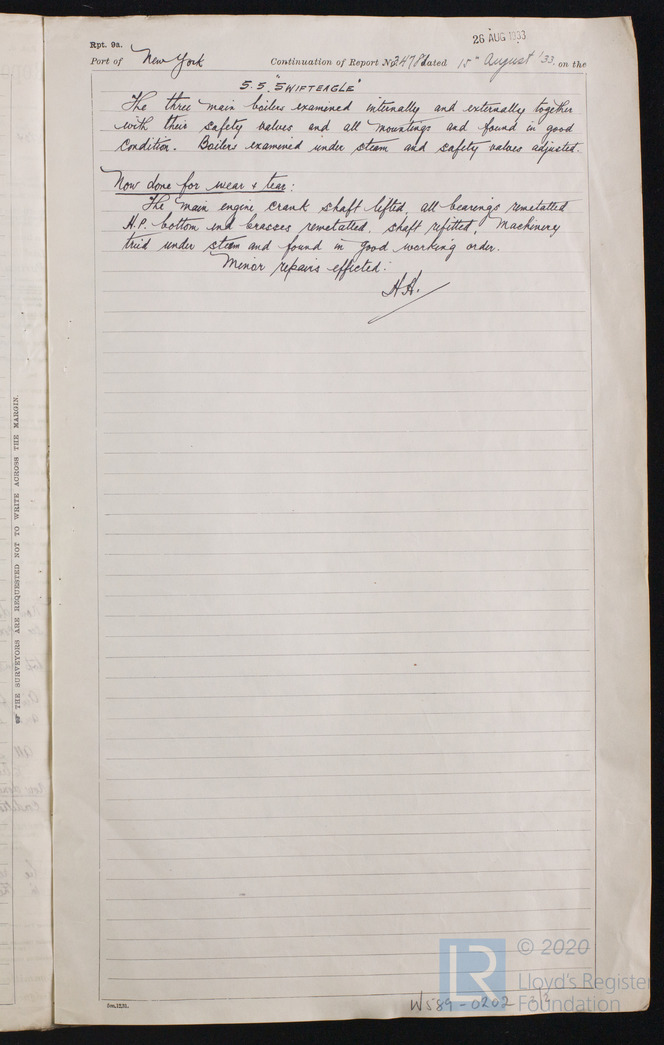 Rpt. 9a.
26 AUG 1933
Port of New York Continuation of Report No 24781 dated 15th August '33. on the
S.S. "SWIFTEAGLE"
The three main boilers examined internally and externally together
with their safety valves and all mountings and found in good
condition. Boilers examined under steam and safety valves adjusted.
Now done for wear & tear:
The main engine crank shaft lifted, all bearings remetalled
H.P. bottom end brasses remetalled, shaft refitted, Machinery
tried under steam and found in good working order.
Minor repairs effected:
H.H.
THE SURVEYORS ARE REQUESTED NOT TO WRITE ACROSS THE MARGIN.
LR
© 2020
Lloyd's Register
Foundation
W589-0202